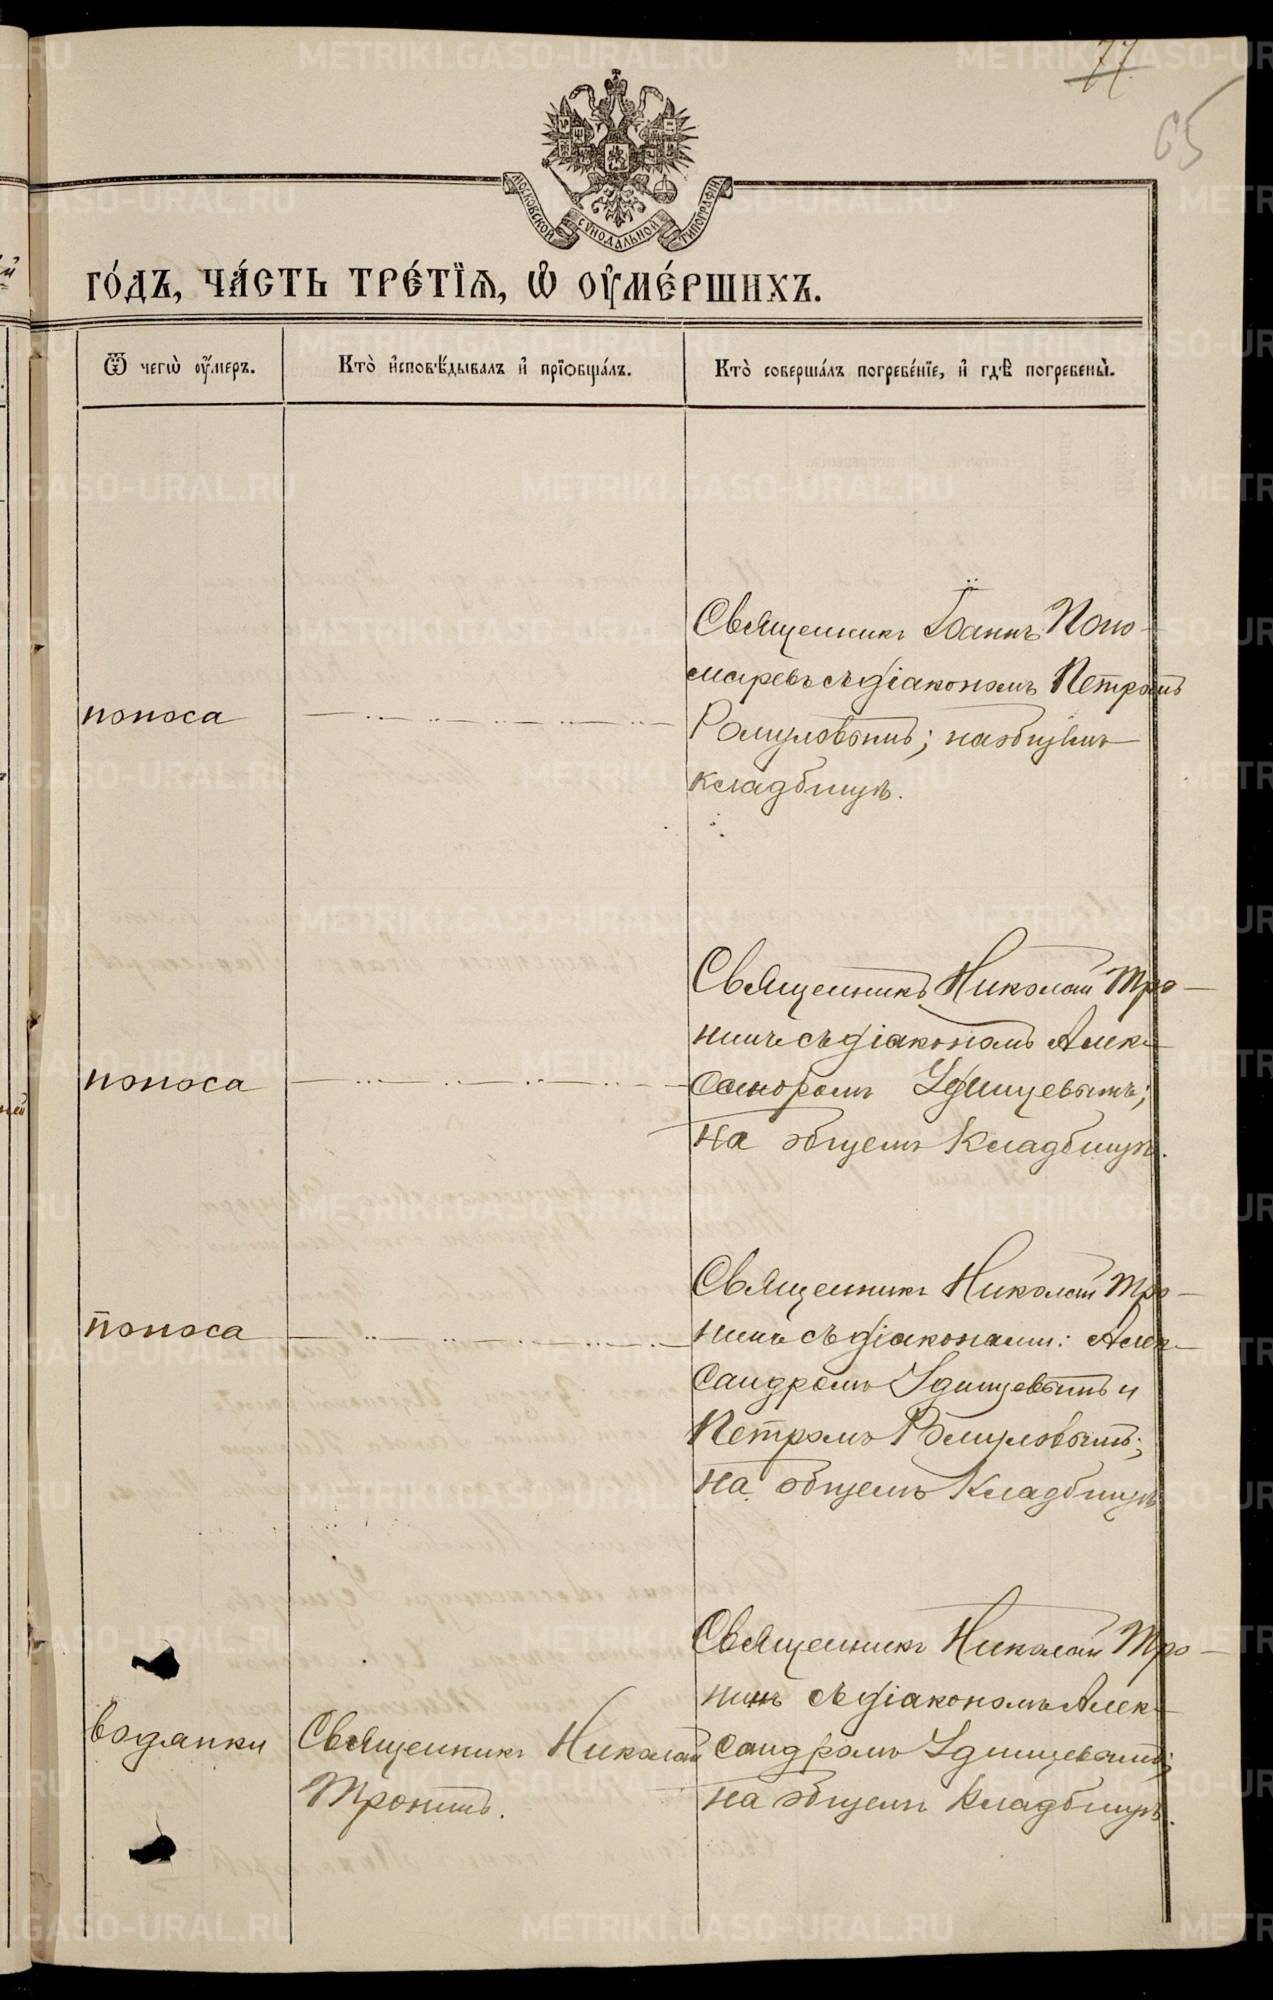 77
65
МОСКОВСКОЙ СѴНОДАЛЬНОЙ ТИПОГРАФІИ
го́дъ, ча́сть тре́тїѧ, ѡ҆ ᲂу҆ме́ршихъ.
Ѿ чегѡ̀ ᲂу҆́меръ.
Кто̀ и҆сповѣ́дывалъ и҆ прїѻбща́лъ.
Кто̀ соверша́лъ погребе́нїе, и҆ гдѣ̀ погребены̀.
поноса
Священникъ Іоаннъ Поно-
маревъ съ діакономъ Петромъ
Ромуловымъ; на общемъ
кладбищѣ.
поноса
Священникъ Николай Тро-
нинъ съ діакономъ Алек-
сандромъ Удинцевымъ;
на общемъ кладбищѣ.
поноса
Священникъ Николай Тро-
нинъ съ діаконами: Алек-
сандромъ Удинцевымъ и
Петромъ Ромуловымъ;
на общемъ кладбищѣ
водянки
Священникъ Николай
Тронинъ.
Священникъ Николай Тро-
нинъ съ діакономъ Алек-
сандромъ Удинцевымъ;
на общемъ кладбищѣ.
METRIKI.GASO-URAL.RU